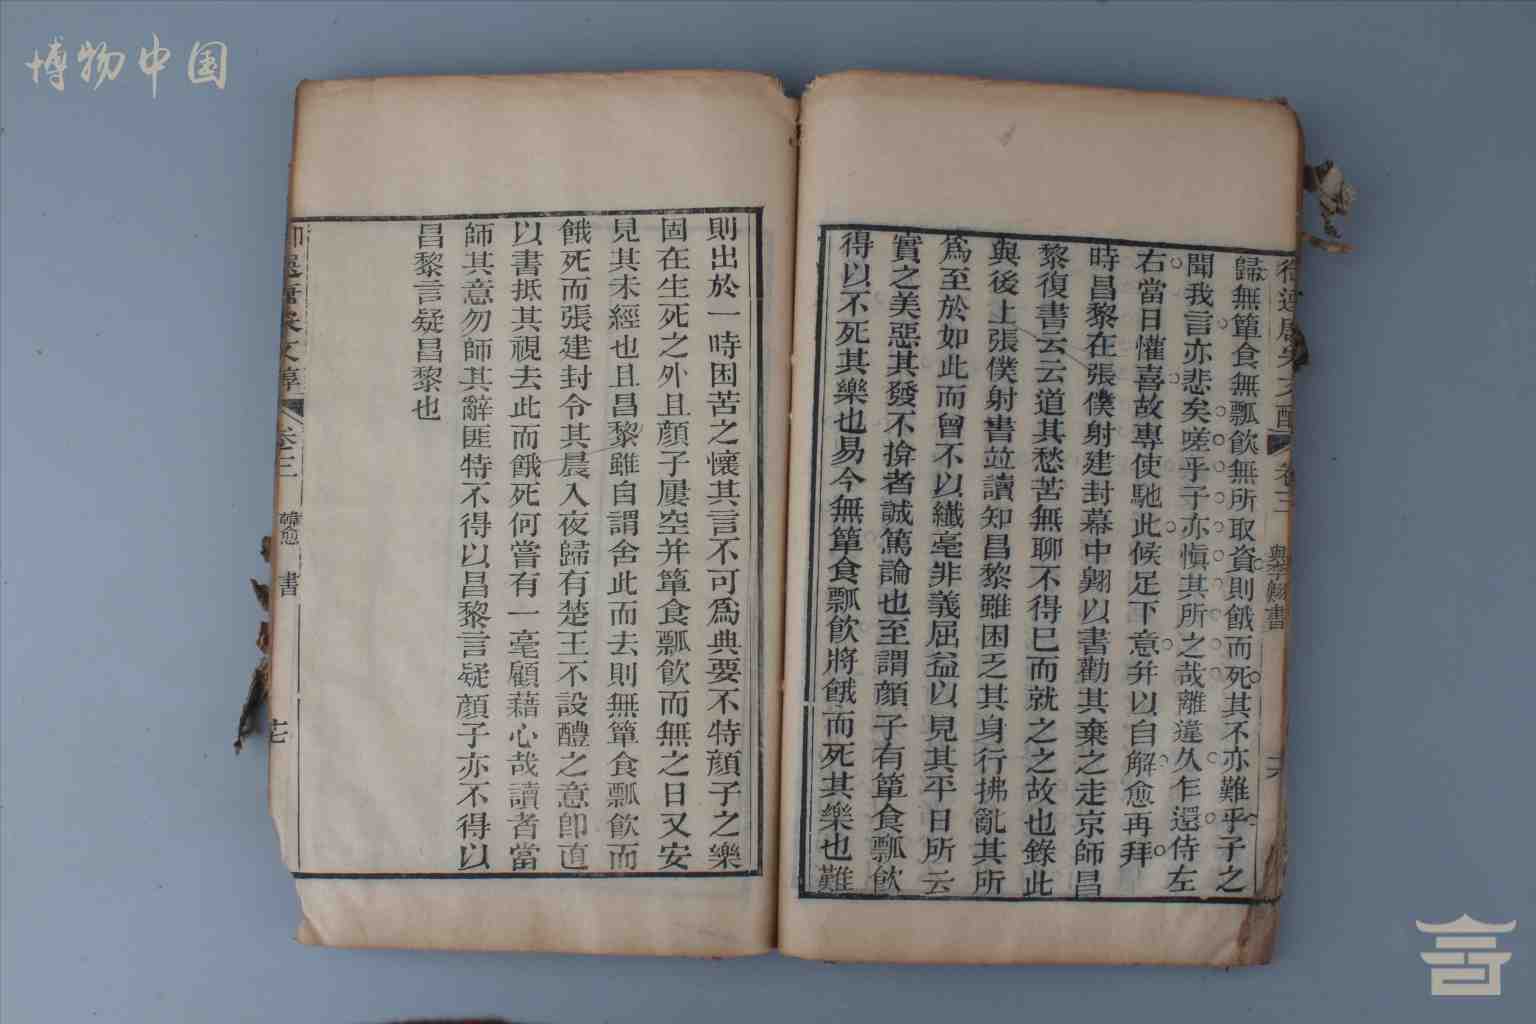 博物中国
歸無簞食無瓢飲無所取資則餓而死其不亦難乎子之
聞我言亦悲矣嗟乎子亦愼其所之哉離違久乍還侍左
右當日懽喜故專使馳此候足下意并以自解愈再拜
時昌黎在張僕射建封幕中翺以書勸其棄之走京師昌
黎復書云云道其愁苦無聊不得已而就之之故也錄此
與後上張僕射書竝讀知昌黎雖困乏其身行拂亂其所
爲至於如此而曾不以纖毫非義屈益以見其平日所云
實之美惡其發不揜者誠篤論也至謂顔子有簞食瓢飮
得以不死其樂也易今無簞食瓢飮將餓而死其樂也難
則出於一時困苦之懷其言不可爲典要不特顔子之樂
固在生死之外且顔子屢空并簞食瓢飮而無之日又安
見其未經也且昌黎雖自謂舍此而去則無簞食瓢飮而
餓死而張建封令其晨入夜歸有楚王不設醴之意卽直
以書抵其視去此而餓死何嘗有一毫顧藉心哉讀者當
師其意勿師其辭匪特不得以昌黎言疑顔子亦不得以
昌黎言疑昌黎也
卷三 韓愈 書